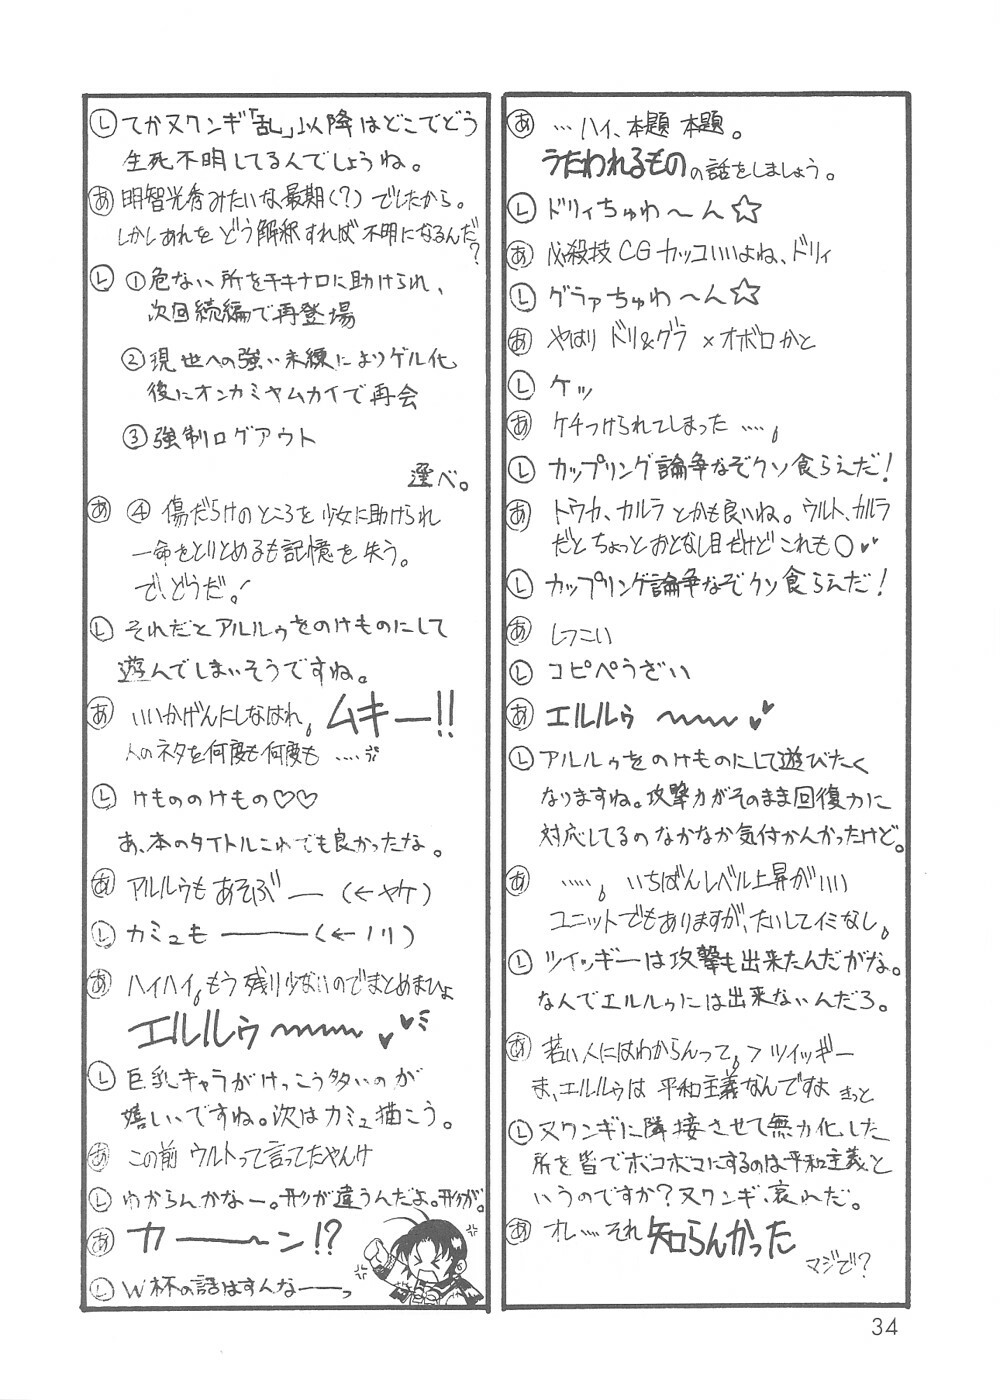 あ …ハイ、本題 本題。
うたわれるものの話をしましょう。
L ドリィちゅわ～ん☆
あ 必殺技CGカッコいいよね、ドリィ
L グラァちゅわ～ん☆
あ やはりドリ&グラ×オボロかと
L ケッ
あ ケチつけられてしまった ‥‥。
L カップリング論争なぞクソ食らえだ!
あ トウカ、カルラとかも良いね。ウルト、カルラ
だとちょっとおとなし目だけどこれも○♥♥
L カップリング論争なぞクソ食らえだ!
あ しつこい
L コピペうざい
あ エルルゥ ～～～♥♥
L アルルゥをのけものにして遊びたく
なりますね。攻撃力がそのまま回復力に
対応してるのなかなか気付かんかったけど。
あ ‥‥‥。いちばんレベル上昇がいい
ユニットでもありますが、たいしてイミなし。
L ツイッギーは攻撃も出来たんだがな。
なんでエルルゥには出来ないんだろ。
あ 若い人にはわからんって。>ツイッギー
ま、エルルゥは平和主義なんですよ きっと
L ヌワンギに隣接させて無力化した
所を皆でボコボコにするのは平和主義と
いうのですか?ヌワンギ、哀れだ。
あ オレ‥‥それ知らんかった
マジで?
L てかヌワンギ「乱」以降はどこでどう
生死不明してるんでしょうね。
あ 明智光秀みたいな最期(?)でしたから。
しかしあれをどう解釈すれば不明になるんだ?
L ①危ない所をチキナロに助けられ、
次回続編で再登場
②現世への強い未練によりゲル化
後にオンカミヤムカイで再会
③強制ログアウト
選べ。
あ ④ 傷だらけのところを少女に助けられ
一命をとりとめるも記憶を失う。
で、どうだ!
L それだとアルルゥをのけものにして
遊んでしまいそうですね。
あ いいかげんにしなはれ。ムキー!!
人のネタを何度も何度も ‥‥
L けもののけもの♡♡
あ、本のタイトルこれでも良かったな。
あ アルルゥもあそぶ― (←ヤケ)
L カミュも ―――(←ノリ)
あ ハイハイ。もう残り少ないのでまとめまひょ
エルルゥ～～～♥♥
L 巨乳キャラがけっこう多いのが
嬉しいですね。次はカミュ描こう。
あ この前ウルトって言ってたやんけ
L わからんかなー。形が違うんだよ。形が。
あ カ―――～ン!?
L W杯の話はすんなーーっ
34